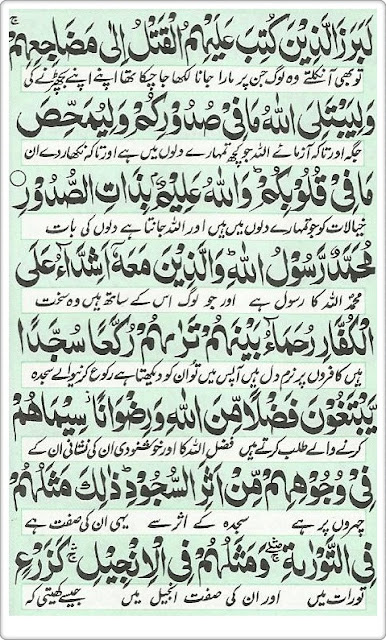 لَبَرَزَ الَّذِيْنَ كُتِبَ عَلَيْهِمُ الْقَتْلُ اِلٰى مَضَاجِعِهِمْ ۚ
تو بھی آ نکلتے وہ لوگ جن پر مارا جانا لکھا جا چکا تھا اپنے اپنے بچھڑنے کی
وَلِيَبْتَلِيَ اللّٰهُ مَا فِيْ صُدُوْرِكُمْ وَلِيُمَحِّصَ
جگہ اور تاکہ آزمائے اللہ جو کچھ تمہارے دلوں میں ہے اور تاکہ نکھار دے ان
مَا فِيْ قُلُوْبِكُمْ ؕ وَاللّٰهُ عَلِيْمٌۢ بِذَاتِ الصُّدُوْرِ
خیالات کو جو تمہارے دلوں میں ہیں اور اللہ جانتا ہے دلوں کی بات
مُحَمَّدٌ رَّسُوْلُ اللّٰهِ ؕ وَالَّذِيْنَ مَعَهٗۤ اَشِدَّآءُ عَلَى
محمد اللہ کا رسول ہے اور جو لوگ اس کے ساتھ ہیں وہ سخت
الْكُفَّارِ رُحَمَآءُ بَيْنَهُمْ تَرٰىهُمْ رُكَّعًا سُجَّدًا
ہیں کافروں پر نرم دل ہیں آپس میں تو ان کو دیکھتا ہے رکوع کرنیوالے سجدہ
يَّبْتَغُوْنَ فَضْلًا مِّنَ اللّٰهِ وَرِضْوَانًا ؗ سِيْمَاهُمْ
کرنے والے طلب کرتے ہیں فضل اللہ کا اور خوشنودی ان کی نشانی ان کے
فِيْ وُجُوْهِهِمْ مِّنْ اَثَرِ السُّجُوْدِ ؕ ذٰلِكَ مَثَلُهُمْ
چہروں پر ہے سجدہ کے اثر سے یہی ان کی صفت ہے
فِي التَّوْرٰىةِ ۛۖۚ وَمَثَلُهُمْ فِي الْاِنْجِيْلِ ۛۚ كَزَرْعٍ
تورات میں اور ان کی صفت انجیل میں جیسے کھیتی کہ